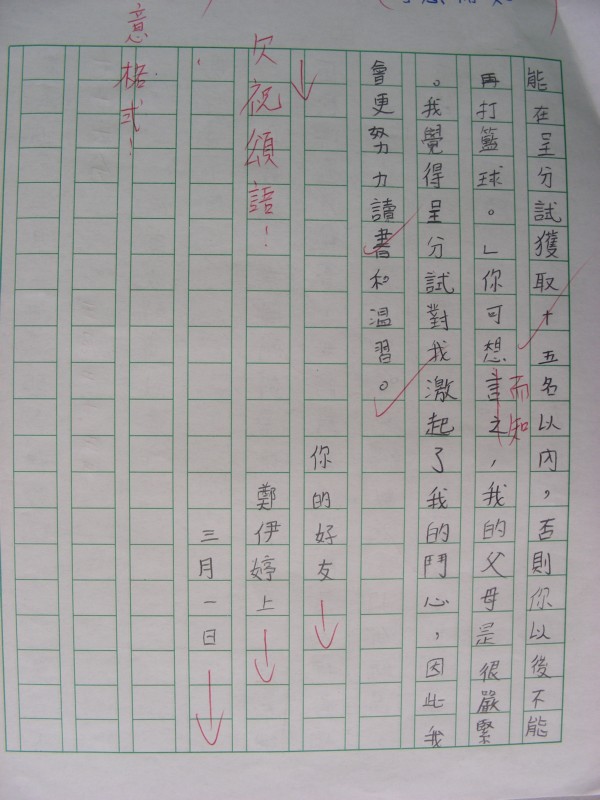 能在呈分試獲取十五名以內，否則你以後不能
再打籃球。」你可想言之，我的父母是很嚴緊
而知
。我覺得呈分試對我激起了我的鬥心，因此我
會更努力讀書和温習。
你的好友
欠祝頌語！
鄭伊婷上
三月一日
意格式！